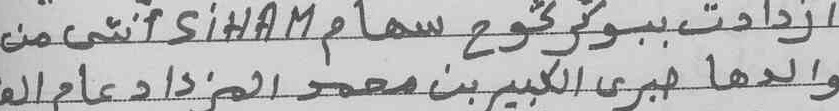 ازدادت ببوكركوح سهام SiHAM أنثى من
والدها صبري الكبير بن محمد المزداد عام الف